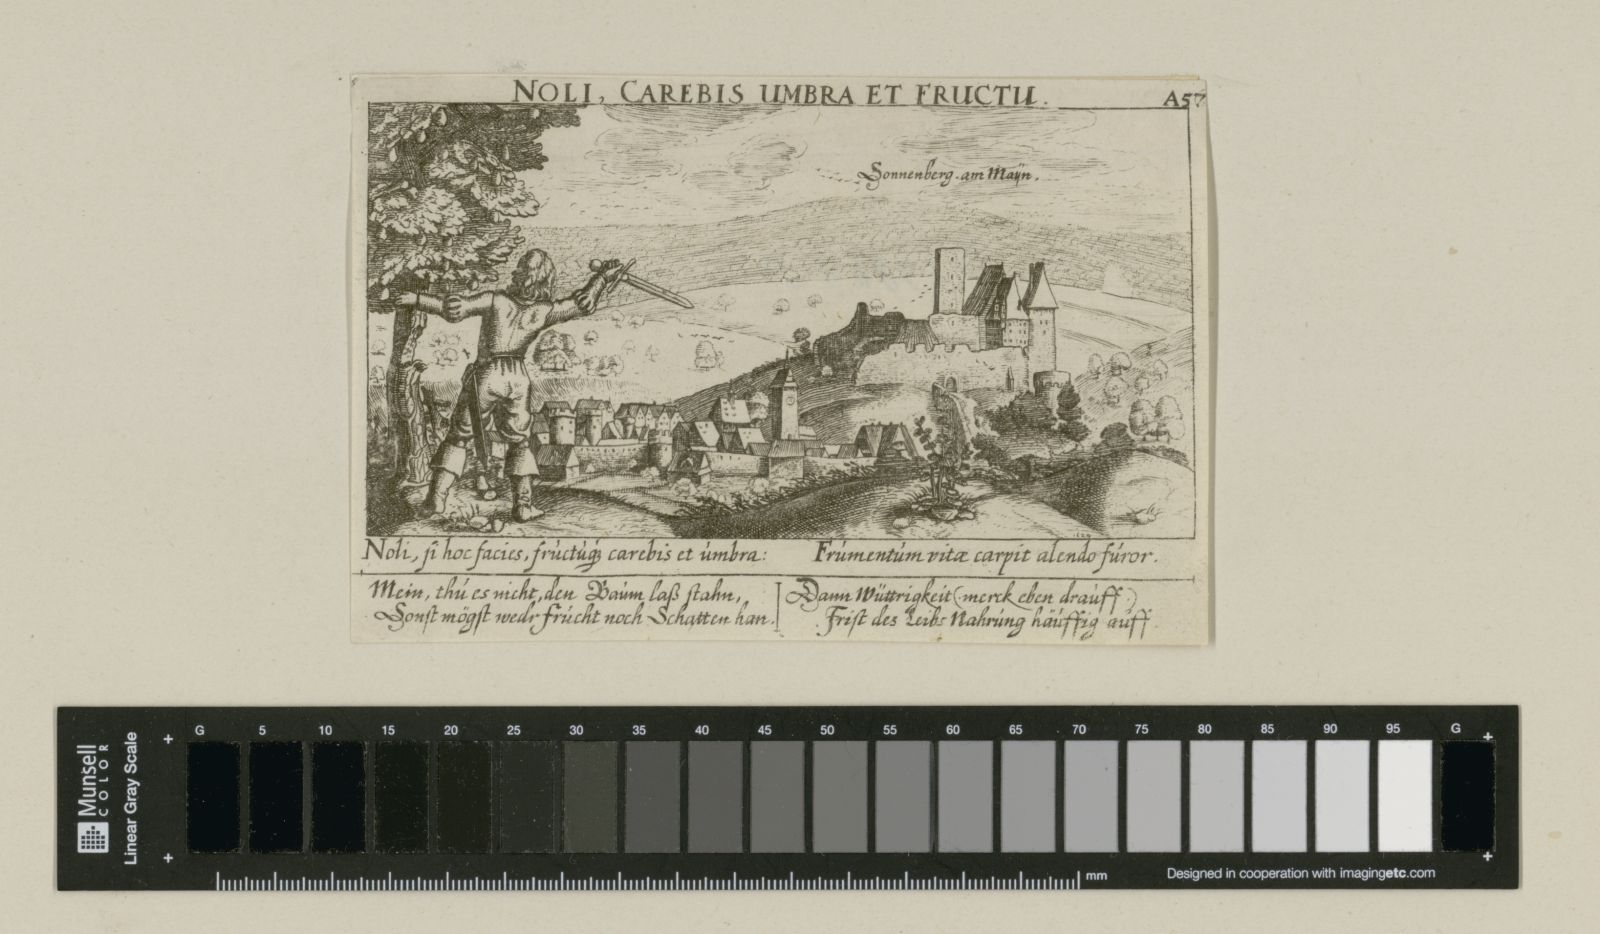 NOLI, CAREBIS UMBRA ET FRUCTU.
A57
Sonnenberg am Maÿn.
Noli, si hoc facies, fructuq; carebis et umbra: Frumentum vitæ carpit alendo furor.
Mein, thu es nicht, den Baum laß stahn,
Sonst mögst wedr frucht noch Schatten han.
Dann Wüttrigkeit (merck eben drauff)
Frist des Leibs Nahrung häuffig auff.
G 5 10 15 20 25 30 35 40 45 50 55 60 65 70 75 80 85 90 95 G
Munsell
COLOR
Linear Gray Scale
mm
Designed in cooperation with imagingetc.com